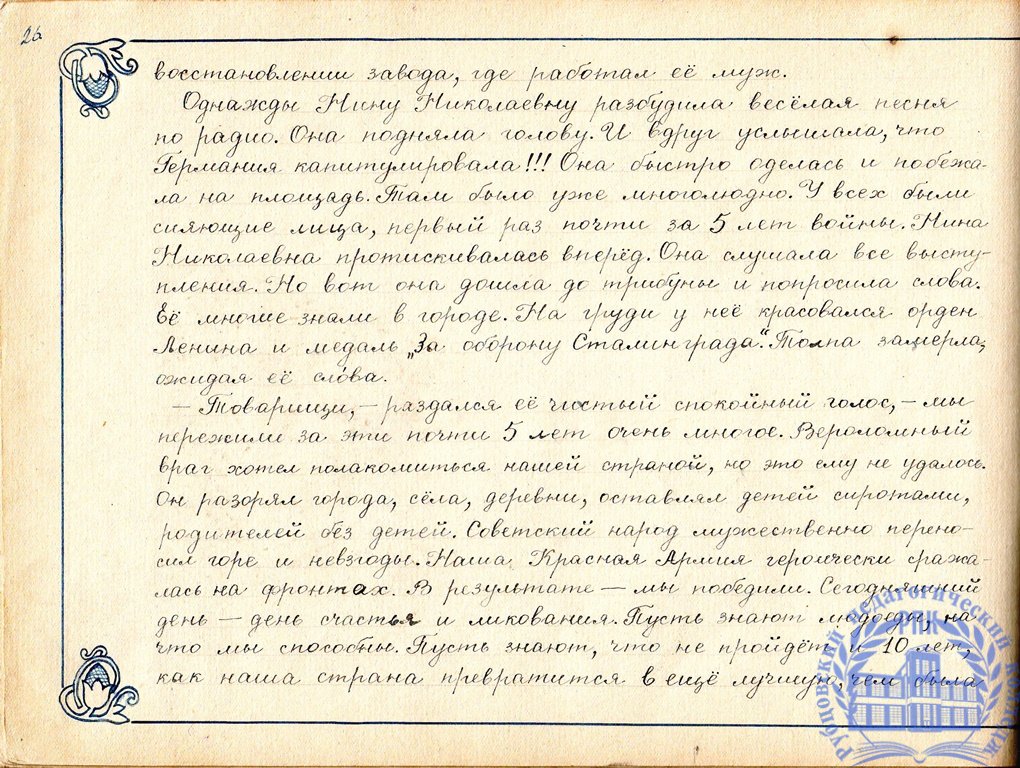 26
восстановлении завода, где работал её муж.
Однажды Нину Николаевну разбудила весёлая песня
по радио. Она подняла голову. И вдруг услышала, что
Германия капитулировала!!! Она быстро оделась и побежа-
ла на площадь. Там было уже многолюдно. У всех были
сияющие лица, первый раз почти за 5 лет войны. Нина
Николаевна протискивалась вперёд. Она слушала все высту-
пления. Но вот она дошла до трибуны и попросила слова.
Её многие знали в городе. На груди у неё красовался орден
Ленина и медаль „За оборону Сталинграда“. Толпа замерла,
ожидая её слова.
— Товарищи, — раздался её чистый спокойный голос, — мы
пережили за эти почти 5 лет очень многое. Вероломный
враг хотел полакомиться нашей страной, но это ему не удалось.
Он разорял города, сёла, деревни, оставлял детей сиротами,
родителей без детей. Советский народ мужественно перено-
сил горе и невзгоды. Наша Красная Армия героически сража-
лась на фронтах. В результате — мы победили. Сегодняшний
день — день счастья и ликования. Пусть знают людоеды, на
что мы способны. Пусть знают, что не пройдёт и 10 лет,
как наша страна превратится в ещё лучшую, чем была
Рубцовский педагогический колледж
РПК